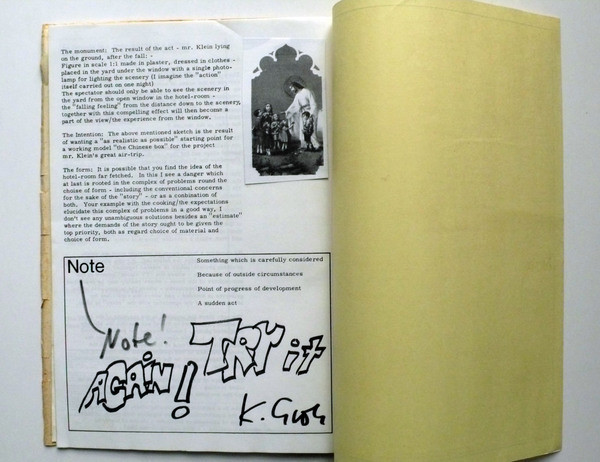 The monument: The result of the act - mr. Klein lying
on the ground, after the fall: -
Figure in scale 1:1 made in plaster, dressed in clothes -
placed in the yard under the window with a single photo-
lamp for lighting the scenery (I imagine the "action"
itself carried out on one night)
The spectator should only be able to see the scenery in
the yard from the open window in the hotel-room -
the "falling feeling" from the distance down to the scenery,
together with this compelling effect will then become a
part of the view/the experience from the window.
The Intention: The above mentioned sketch is the result
of wanting a "as realistic as possible" starting point for
a working model "the Chinese box" for the project
mr. Klein's great air-trip.
The form: It is possible that you find the idea of the
hotel-room far fetched. In this I see a danger which
at last is rooted in the complex of problems round the
choise of form - including the conventional concerns
for the sake of the "story" - or as a conbination of
both. Your example with the cooking/the expectations
elucidate this complex of problems in a good way. I
don't see any unambiguous solutions besides an "estimate"
where the demands of the story ought to be given the
top priority, both as regard choice of material and
choice of form.
Note
Something which is carefully considered
Because of outside circumstances
Point of progress of development
A sudden act
Note!
TRY it
AGAiN!
K. Groh